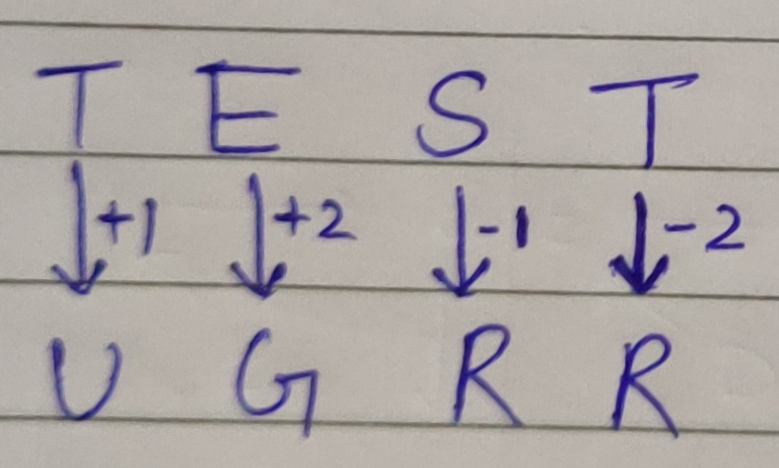 T E S T
+1 +2 -1 -2
U G R R